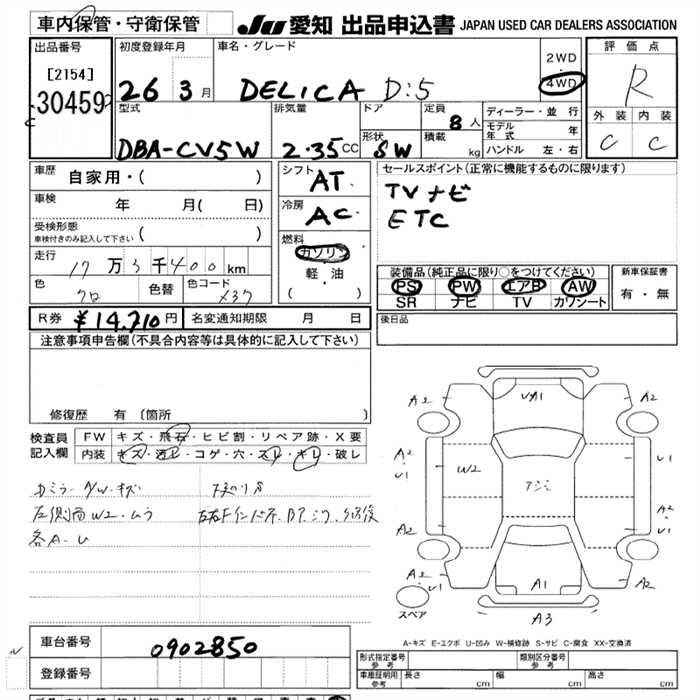 車内保管・守衛保管
JU 愛知 出品申込書 JAPAN USED CAR DEALERS ASSOCIATION
出品番号
[2154]
30459
初度登録年月
26 3月
車名・グレード
DELICA D:5
2WD
4WD
評価点
R
外装 内装
C C
型式
DBA-CV5W
排気量
2.35CC
ドア
形状
SW
定員
8人
積載
kg
ディーラー・並行
モデル年式 年
ハンドル 左・右
車歴
自家用・( )
車検
年 月( 日)
受検形態
車検付きのみ記入して下さい ( )
走行
17万3千400km
色
クロ
色替
色コード
X37
シフト
AT
冷房
AC
燃料
ガソリン
軽・油
( )
セールスポイント(正常に機能するものに限ります)
TV ナビ
ETC
装備品(純正品に限り○をつけてください)
PS PW エアB AW
SR ナビ TV カワシート
新車保証書
有・無
R券 ¥14.710円
名変通知期限 月 日
後日品
注意事項申告欄(不具合内容等は具体的に記入して下さい)
修復歴 有 〔箇所 〕
検査員
記入欄
FW キズ・飛石・ヒビ割・リペア跡・X要
内装 キズ・汚レ・コゲ・穴・スレ・キレ・破レ
左側面W2.ムラ
各A.U
A2
VA1
A2
A2
U1
W2
アシミ
U1
A2
A2
U1
A2
U1
A1
A2
スペア
A3
A-キズ E-エクボ U-凹み W-補修跡 S-サビ C-腐食 XX-交換済
車台番号
0902850
登録番号
形式指定番号
参考
類別区分番号
参考
車庫証明用
参考
長さ cm 幅 cm 高さ cm